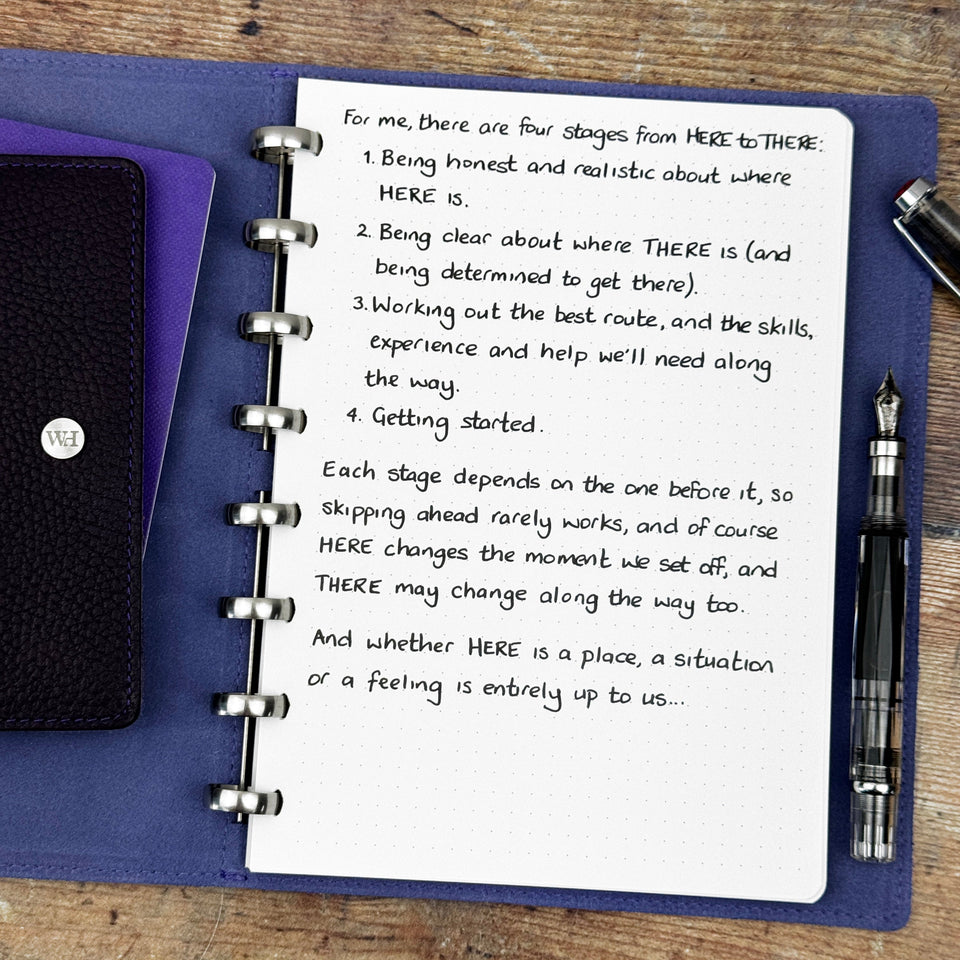 For me, there are four stages from HERE to THERE:
1. Being honest and realistic about where
HERE is.
2. Being clear about where THERE is (and
being determined to get there).
3. Working out the best route, and the skills,
experience and help we'll need along
the way.
4. Getting started.
Each stage depends on the one before it, so
skipping ahead rarely works, and of course
HERE changes the moment we set off, and
THERE may change along the way too.
And whether HERE is a place, a situation
or a feeling is entirely up to us...
WH